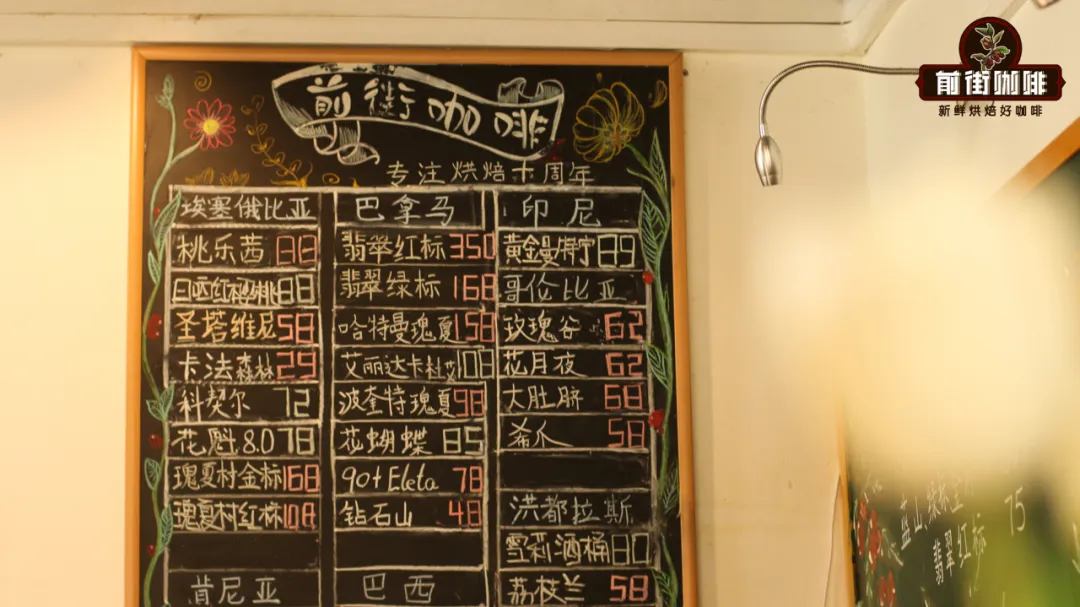 前街咖啡
专注烘焙十周年
埃塞俄比亚
桃乐茜 88
日晒红樱桃 88
圣塔维尼 58
卡法森林 29
科契尔 72
花魁8.0 78
瑰夏村金标 168
瑰夏村红标 108
肯尼亚
巴拿马
翡翠红标 350
翡翠绿标 168
哈特曼瑰夏 158
艾丽达卡杜艾 108
波奎特瑰夏 98
花蝴蝶 85
90+Eleta 78
钻石山 48
巴西
印尼
黄金曼特宁 89
哥伦比亚
玫瑰谷 62
花月夜 62
大肚脐 68
希爪 58
洪都拉斯
雪莉酒桶 80
荔枝兰 58
前街咖啡
新鲜烘焙好咖啡
翡翠红标 75